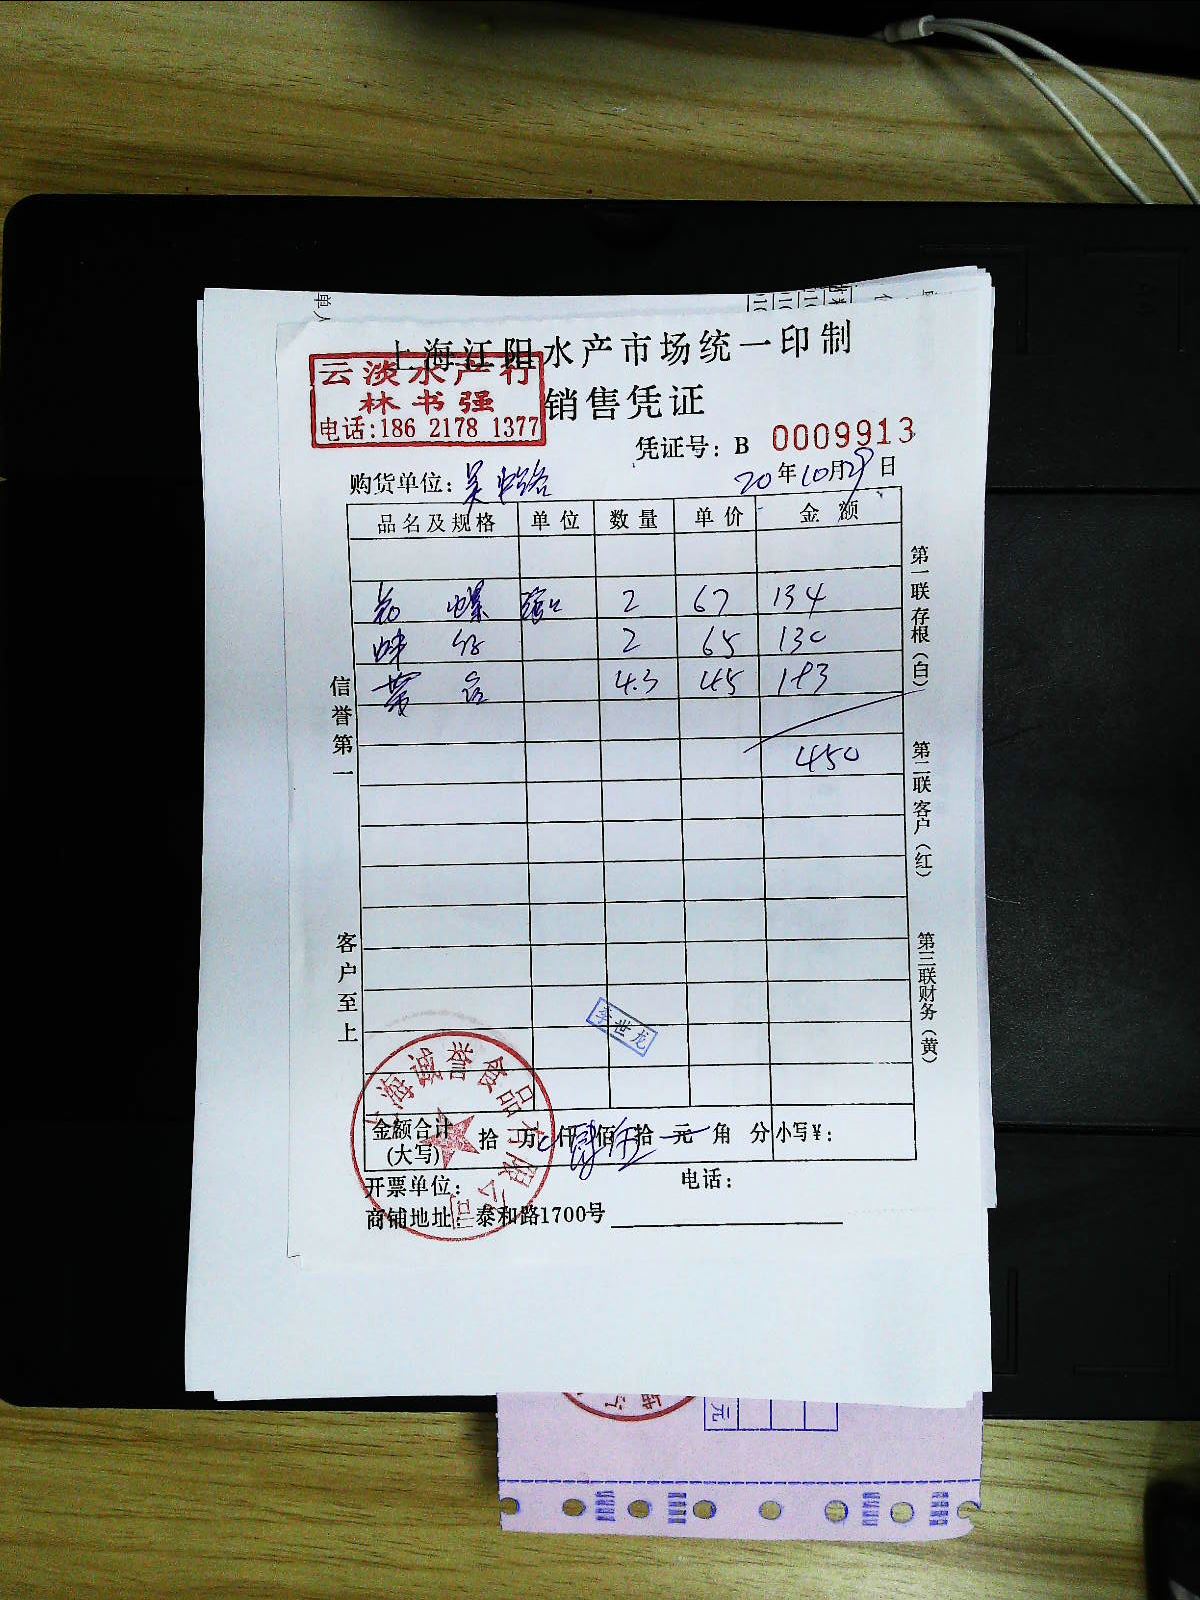 上海江阳水产市场统一印制
云淡水产行
林书强
电话:186 2178 1377
销售凭证
凭证号: B 0009913
购货单位: 吴
20年10月29日
品名及规格 单位 数量 单价 金额
螺 2 67 134
2 65 130
4.3 45 193
450
信誉第一
客户至上
第一联存根(白)
第二联客户(红)
第三联财务(黄)
李世龙
上海诚裕食品有限公司
金额合计(大写) 拾 万 仟 佰 拾 元 角 分 小写¥:
开票单位: 电话:
商铺地址: 泰和路1700号
元